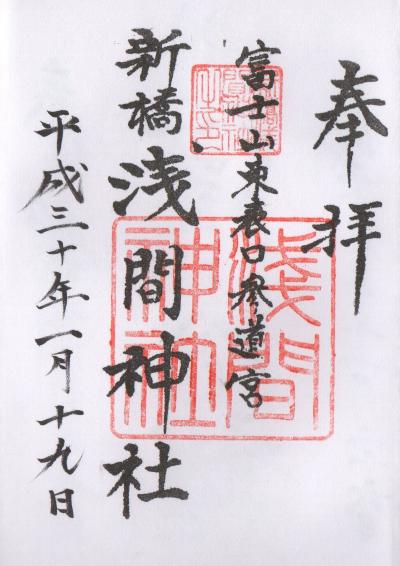 奉拝
富士山東表口参道宮
新橋浅間神社
平成三十年一月十九日
淺間神社